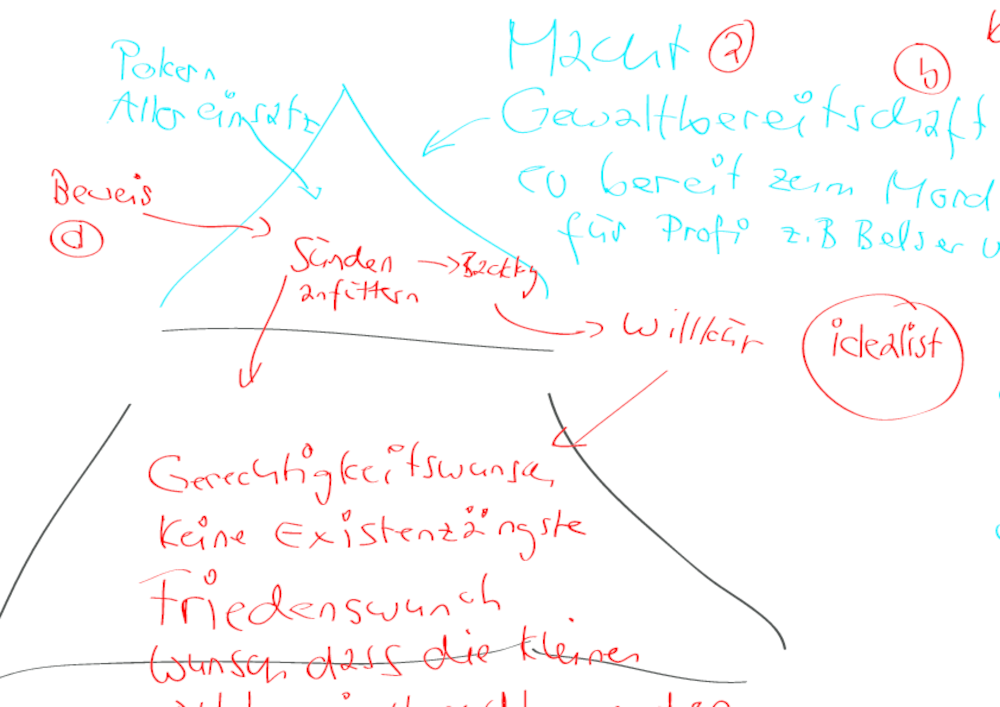 Macht a
b
Pokern
Aller einsatz
Gewaltbereitschaft
bereit zum Mord
für Profi z.B Belser
Beweis
d
Sünden
anfüttern
Willkür
idealist
Gerechtigkeitswunsch
Keine Existenzängste
Friedenswunch
Wunsch dass die kleinen